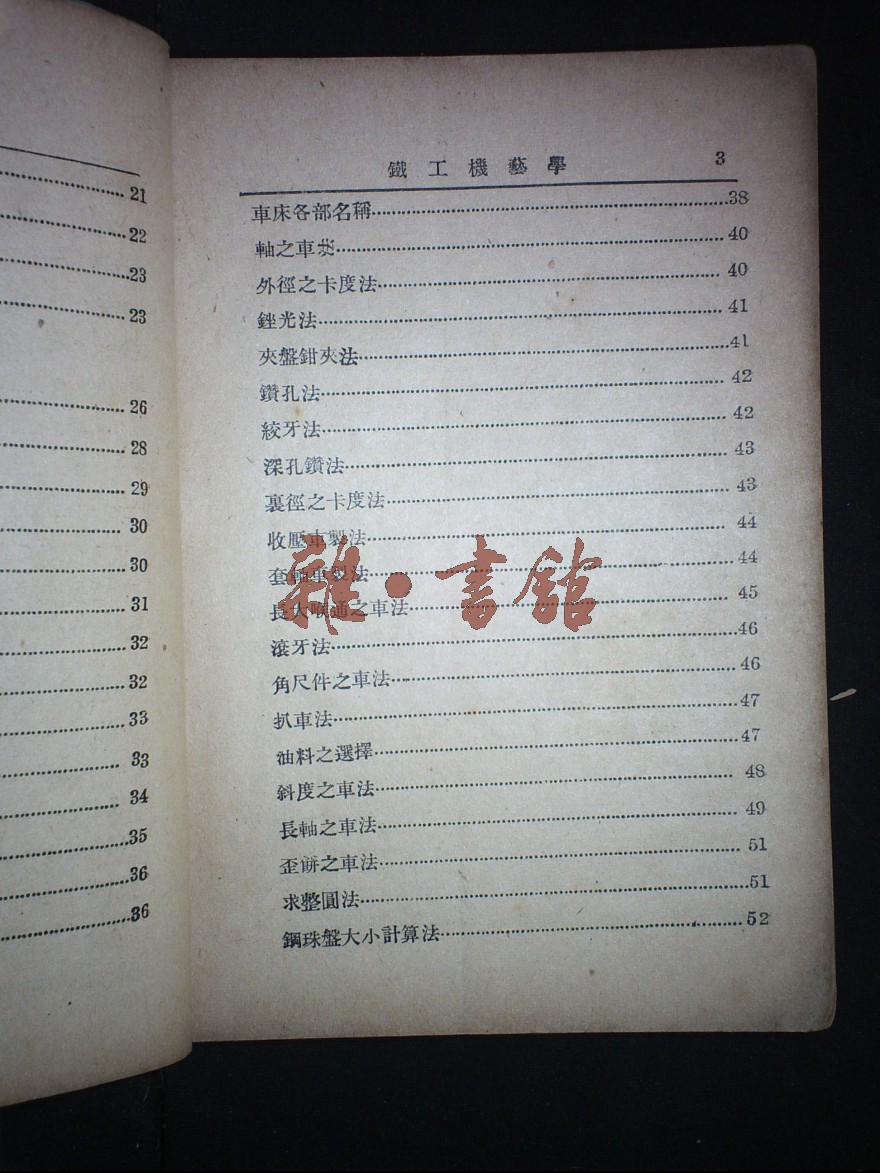 21
22
23
23
26
28
29
30
30
31
32
32
33
33
34
35
36
36
鐵工機藝學 3
車床各部名稱 38
軸之車 40
外徑之卡度法 40
銼光法 41
夾盤鉗夾法 41
鑽孔法 42
絞牙法 42
深孔鑽法 43
裏徑之卡度法 43
收壓車製法 44
套軸車製法 44
長大喉通之車法 45
滾牙法 46
角尺件之車法 46
扒車法 47
油料之選擇 47
斜度之車法 48
長軸之車法 49
歪餅之車法 51
求整圓法 51
鋼珠盤大小計算法 52
雜·書館